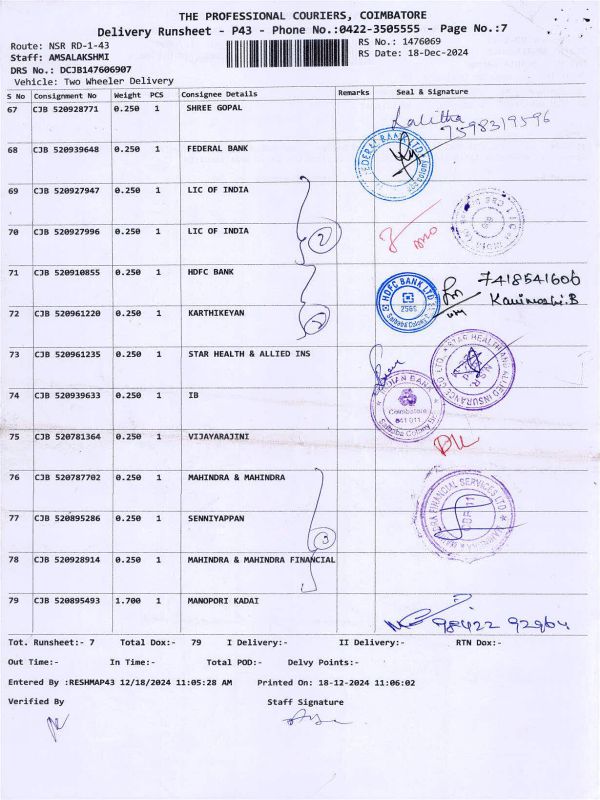 THE PROFESSIONAL COURIERS, COIMBATORE
Delivery Runsheet - P43 - Phone No.:0422-3505555 - Page No.:7
Route: NSR RD-1-43 RS No.: 1476069
Staff: AMSALAKSHMI RS Date: 18-Dec-2024
DRS No.: DCJB147606907
Vehicle: Two Wheeler Delivery
S No Consignment No Weight PCS Consignee Details Remarks Seal & Signature
67 CJB 520928771 0.250 1 SHREE GOPAL Lalitha 7598319596
68 CJB 520939648 0.250 1 FEDERAL BANK
69 CJB 520927947 0.250 1 LIC OF INDIA
70 CJB 520927996 0.250 1 LIC OF INDIA 2
71 CJB 520910855 0.250 1 HDFC BANK HDFC BANK LTD 7418541606
72 CJB 520961220 0.250 1 KARTHIKEYAN
73 CJB 520961235 0.250 1 STAR HEALTH & ALLIED INS STAR HEALTH AND ALLIED INSURANCE CO. LTD.
74 CJB 520939633 0.250 1 IB INDIAN BANK Coimbatore 641 011 Saibaba Colony
75 CJB 520781364 0.250 1 VIJAYARAJINI
76 CJB 520787702 0.250 1 MAHINDRA & MAHINDRA
77 CJB 520895286 0.250 1 SENNIYAPPAN 3
78 CJB 520928914 0.250 1 MAHINDRA & MAHINDRA FINANCIAL
79 CJB 520895493 1.700 1 MANOPORI KADAI 98422 92964
Tot. Runsheet:- 7 Total Dox:- 79 I Delivery:- II Delivery:- RTN Dox:-
Out Time:- In Time:- Total POD:- Delvy Points:-
Entered By :RESHMAP43 12/18/2024 11:05:28 AM Printed On: 18-12-2024 11:06:02
Verified By Staff Signature